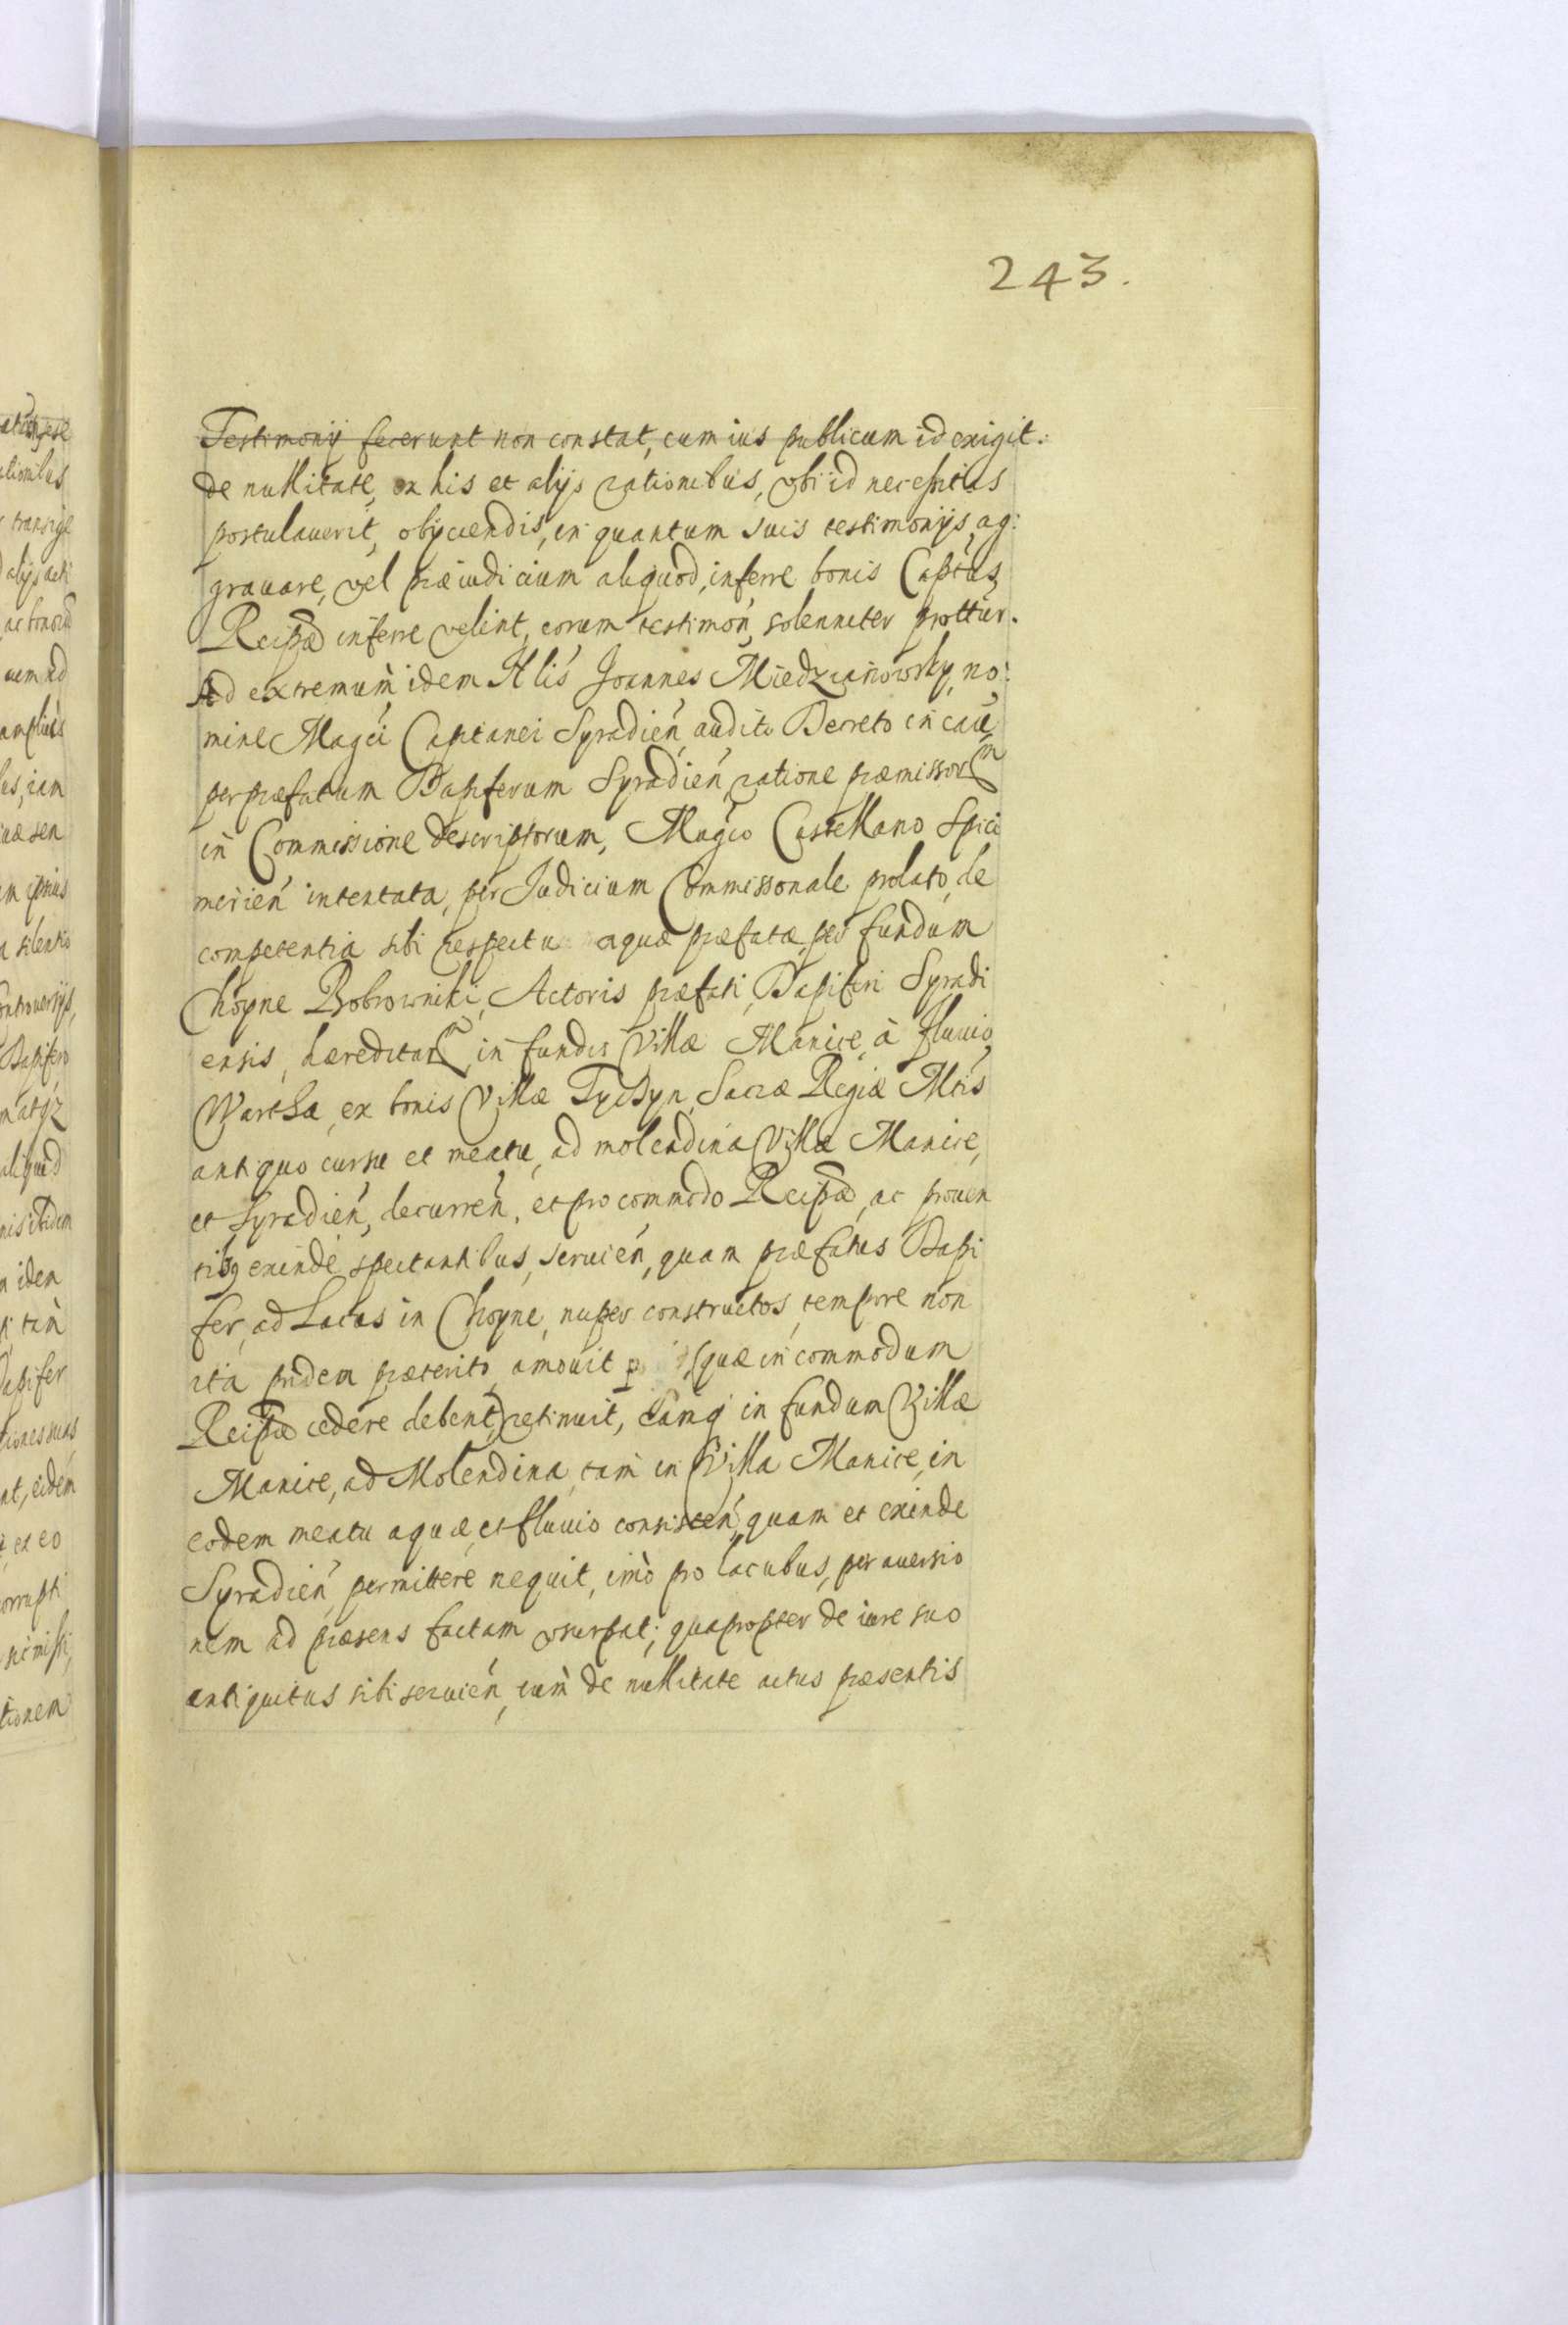 243.
Testimonij fecerunt non constat, cum ius publicum id exigit.
de nullitate, ex his et alijs rationibus, vbi id necessitas
postulauerit, obijciendis, in quantum suis testimonijs, ag:
grauare, vel præiudicium aliquod, inferre bonis Captus,
Reipæ inferre velint, eorum testimoń, solenniter prottur.
Ad extremum idem Nlis Joannes Miedzianowsky, no:
mine Magci Capitanei Syradień, audito Decreto in cau
per præfatum Dapiferum Syradień, ratione præmissorm
in Commissione descriptorum, Magco Castellano Spici
merień intentata, per Judicium Commissonale prolato, de
competentia sibi respectu aquæ præfatæ, per fundum
Choyne Bobrowniki, Actoris præfati, Dapiferi Syradi
ensis, hæreditar in fundis Villæ Manice, à fluuio
Wartha, ex bonis Villæ Tydyn, Sacræ Regiæ Mtis
antiquo cursu et meatu, ad molendina Villæ Manice,
et Syradień, decurreń, et pro commodo Reipæ, ac prouen
tibg exinde spectantibus, seruień, quam præfatus Dapi
fer, ad Lacus in Choyne, nuper constructos, tempore non
ita pridem præterito, amouit (quæ in commodum
Reipæ cedere debent,) retinuit, eamq in fundum Villæ
Manice, ad Molendina, tam in Villa Manice, in
eodem meatu aquæ, et fluuio consisteń, quam et exinde
Syradień, permittere nequit, imò pro lacubus, per auersio
nem ad præsens factam vsurpat; quapropter de iure suo
antiquitus sibi seruień, tum de nullitate actus præsentis